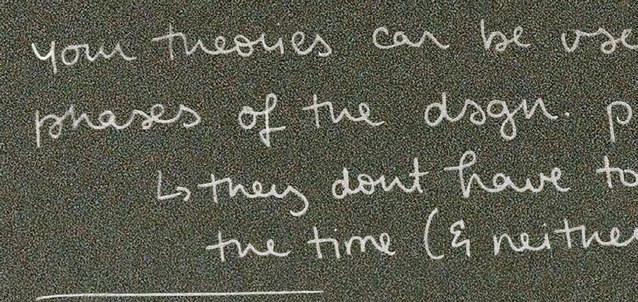 your theories can be use
phases of the dsgn. p
↳ they dont have to
the time (& neither